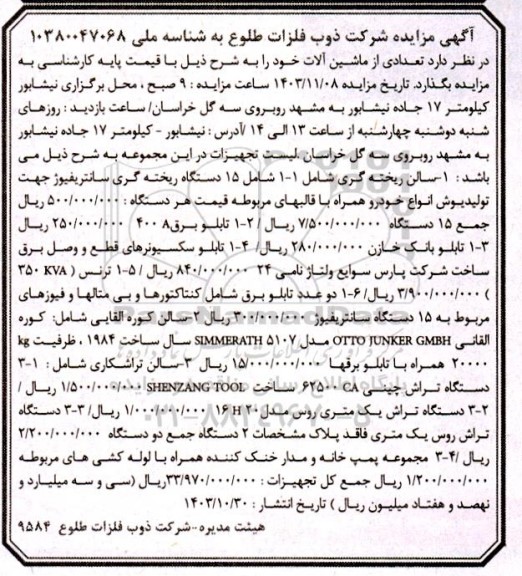 آگهی مزایده شرکت ذوب فلزات طلوع به شناسه ملی ۱۰۳۸۰۰۴۷۰۶۸
در نظر دارد تعدادی از ماشین آلات خود را به شرح ذیل با قیمت پایه کارشناسی به
مزایده بگذارد. تاریخ مزایده ۱۴۰۳/۱۱/۰۸ ساعت مزایده : ۹ صبح ، محل برگزاری نیشابور
کیلومتر ۱۷ جاده نیشابور به مشهد روبروی سه گل خراسان/ ساعت بازدید : روزهای
شنبه دوشنبه چهارشنبه از ساعت ۱۳ الی ۱۴ /آدرس : نیشابور - کیلومتر ۱۷ جاده نیشابور
به مشهد روبروی سه گل خراسان لیست تجهیزات در این مجموعه به شرح ذیل می
باشد : ۱-سالن ریخته گری شامل ۱-۱ شامل ۱۵ دستگاه ریخته گری سانتریفیوژ جهت
تولیدبوش انواع خودرو همراه با قالبهای مربوطه قیمت هر دستگاه : ۵۰۰/۰۰۰/۰۰۰ ریال
جمع ۱۵ دستگاه ۷/۵۰۰/۰۰۰/۰۰۰ ریال / ۲-۱ تابلو برق ۴۰۰ A ۲۵۰/۰۰۰/۰۰۰ ریال
۳-۱ تابلو بانک خازن ۲۸۰/۰۰۰/۰۰۰ ریال/ ۴-۱ تابلو سکسیونرهای قطع و وصل برق
ساخت شرکت پارس سوایع ولتاژ نامی ۲۴ ۸۴۰/۰۰۰/۰۰۰ ریال / ۵-۱ ترنس ( ۳۵۰ KVA
) ۳/۹۰۰/۰۰۰/۰۰۰ ریال/ ۶-۱ دو عدد تابلو برق شامل کنتاکتورها و بی متالها و فیوزهای
مربوط به ۱۵ دستگاه سانتریفیوژ ۳۰۰/۰۰۰/۰۰۰ ریال ۲-سالن کوره القایی شامل: کوره
القائی OTTO JUNKER GMBH مدل SIMMERATH ۵۱۰۷ سال ساخت ۱۹۸۴ ، ظرفیت kg
۲۰۰۰۰ همراه با تابلو برقها ۱۵/۰۰۰/۰۰۰/۰۰۰ ریال ۳-سالن تراشکاری شامل : ۱-۳
دستگاه تراش چینی ۶۲۵۰۰ CA ساخت SHENZANG TOOL ۱/۵۰۰/۰۰۰/۰۰۰ ریال /
۲-۳ دستگاه تراش یک متری روس مدل ۱۶ H ۲۰ ۱/۰۰۰/۰۰۰/۰۰۰ ریال/ ۳-۳ دستگاه
تراش روس یک متری فاقد پلاک مشخصات ۲ دستگاه جمع دو دستگاه ۲/۲۰۰/۰۰۰/۰۰۰
ریال /۴-۳ مجموعه پمپ خانه و مدار خنک کننده همراه با لوله کشی های مربوطه
۱/۲۰۰/۰۰۰/۰۰۰ ریال جمع کل تجهیزات : ۳۳/۹۷۰/۰۰۰/۰۰۰ریال (سی و سه میلیارد و
نهصد و هفتاد میلیون ریال ) تاریخ انتشار : ۱۴۰۳/۱۰/۳۰
هیئت مدیره -شرکت ذوب فلزات طلوع ۹۵۸۴